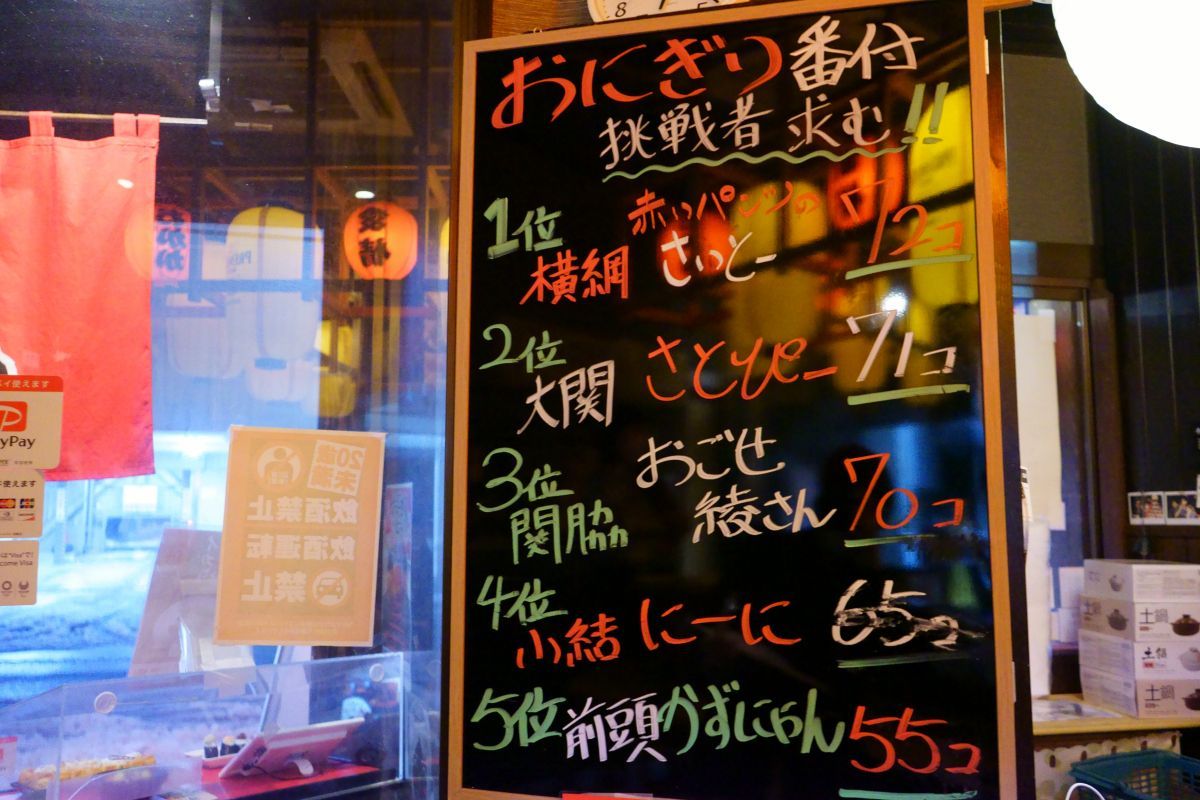 おにぎり番付
挑戦者 求む!!
1位 横綱 赤いパンツの さいとー 72コ
2位 大関 さとぴー 71コ
3位 関脇 おごせ 綾さん 70コ
4位 小結 にーに 65コ
5位 前頭 かずにゃん 55コ
20歳未満
飲酒禁止
飲酒運転
禁止
イ使えます
yPay
使えます
Visa
土鍋
土鍋
土鍋